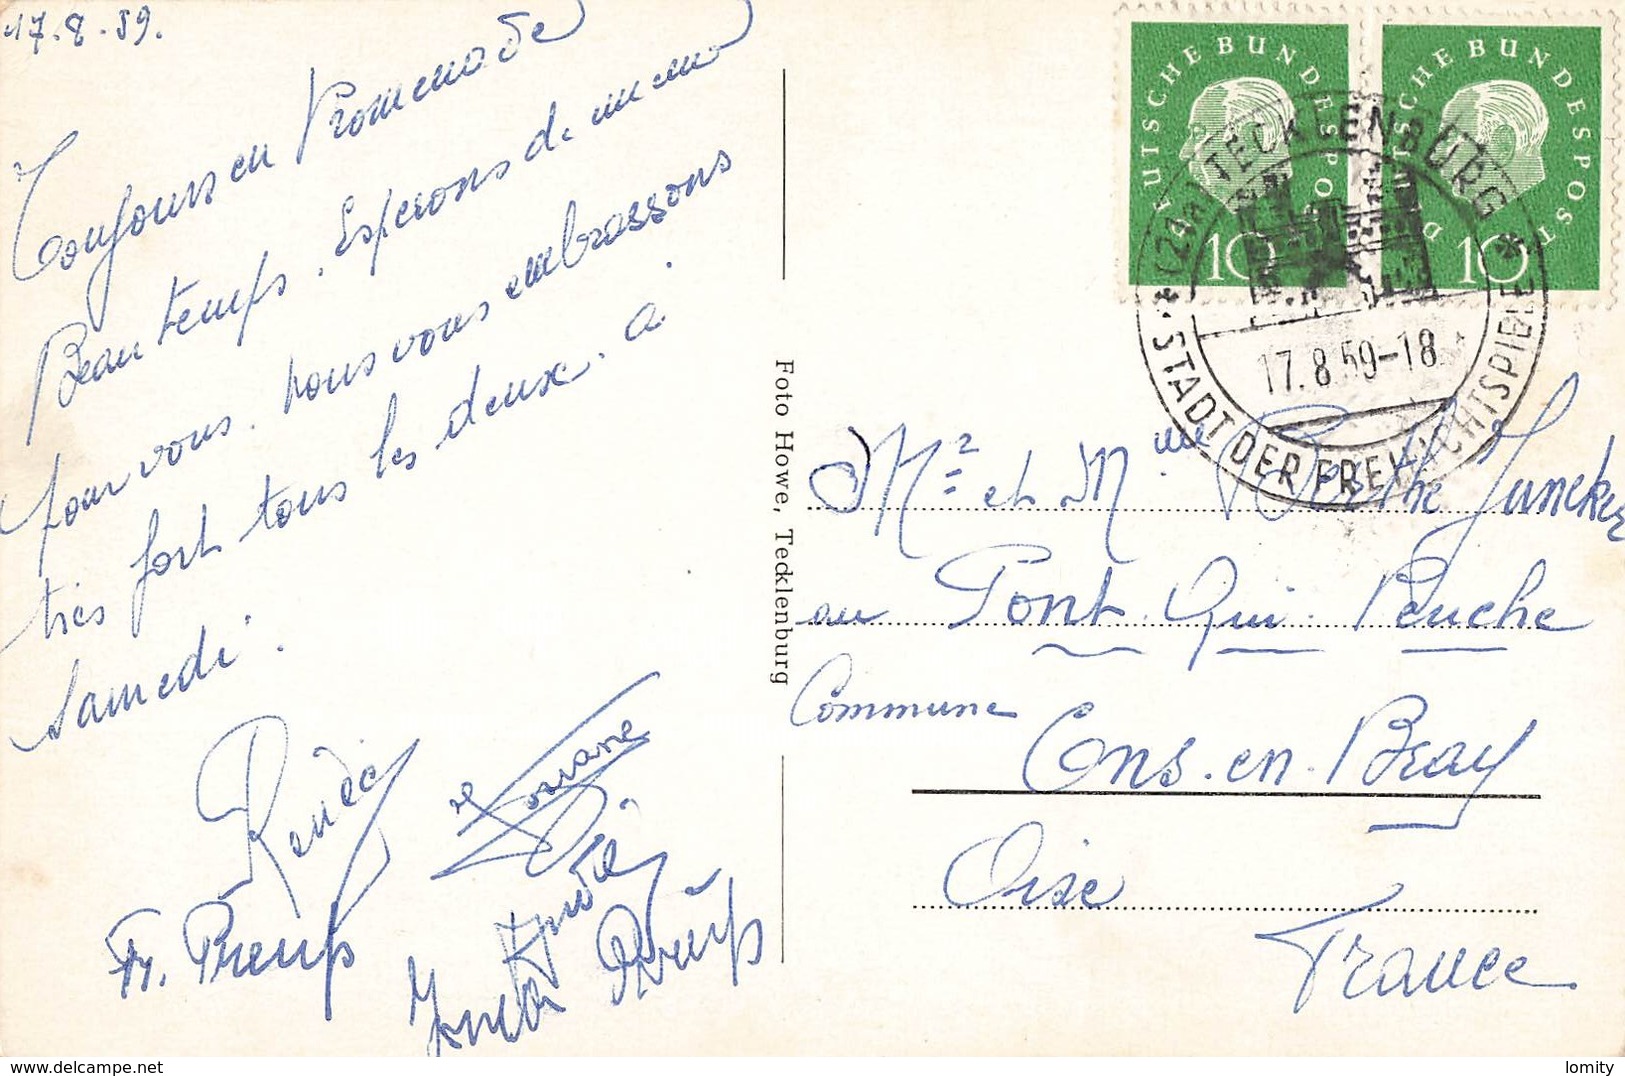 17.8.59.
Toujours en Promenade
Beau temps. Esperons de meme
pour vous. nous vous embrassons
très fort tous les deux. a
Samedi.
Renée
Josiane
Fr. Preuß
Preuß
Foto Howe, Tecklenburg
DEUTSCHE BUNDESPOST
10
DEUTSCHE BUNDESPOST
10
TECKLENBURG
17.8.59-18
STADT DER FREILICHTSPIELE
Mr et Mme Berthe Juncker
au Pont. Qui. Penche
Commune Ons-en-Bray
Oise
France
lomity